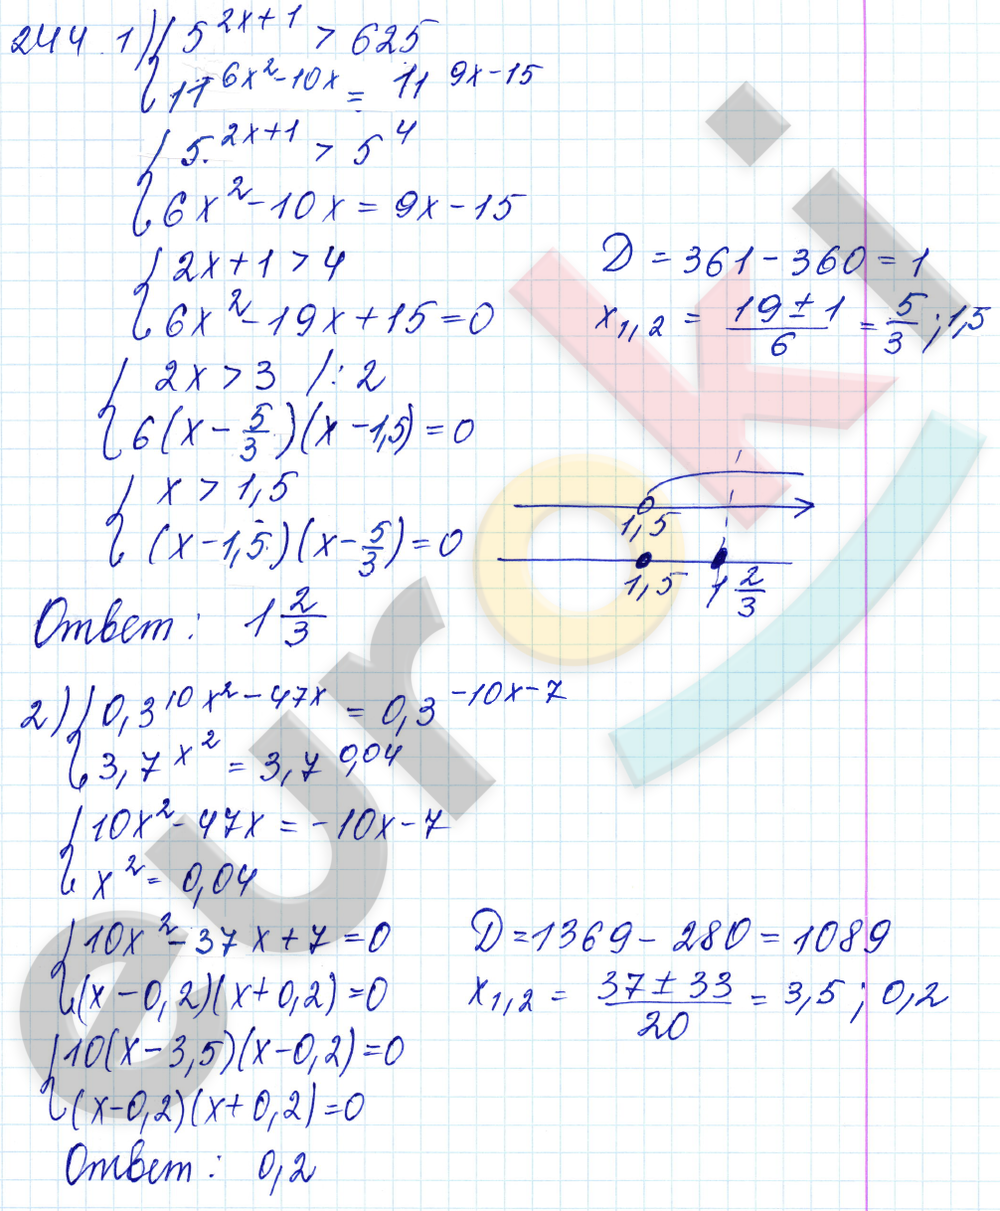 244. 1) { 5^{2x+1} > 625
11^{6x^2-10x} = 11^{9x-15}
{ 5^{2x+1} > 5^4
6x^2-10x = 9x-15
{ 2x+1 > 4
6x^2-19x+15=0
D = 361-360 = 1
x_{1,2} = \frac{19±1}{6} = \frac{5}{3}; 1,5
{ 2x > 3 /: 2
6(x-\frac{5}{3})(x-1,5) = 0
{ x > 1,5
(x-1,5)(x-\frac{5}{3}) = 0
1,5
1,5 1\frac{2}{3}
Ответ: 1\frac{2}{3}
2) { 0,3^{10x^2-47x} = 0,3^{-10x-7}
3,7^{x^2} = 3,7^{0,04}
{ 10x^2-47x = -10x-7
x^2 = 0,04
{ 10x^2-37x+7=0
(x-0,2)(x+0,2)=0
D = 1369-280 = 1089
x_{1,2} = \frac{37±33}{20} = 3,5; 0,2
{ 10(x-3,5)(x-0,2)=0
(x-0,2)(x+0,2)=0
Ответ: 0,2
euroki